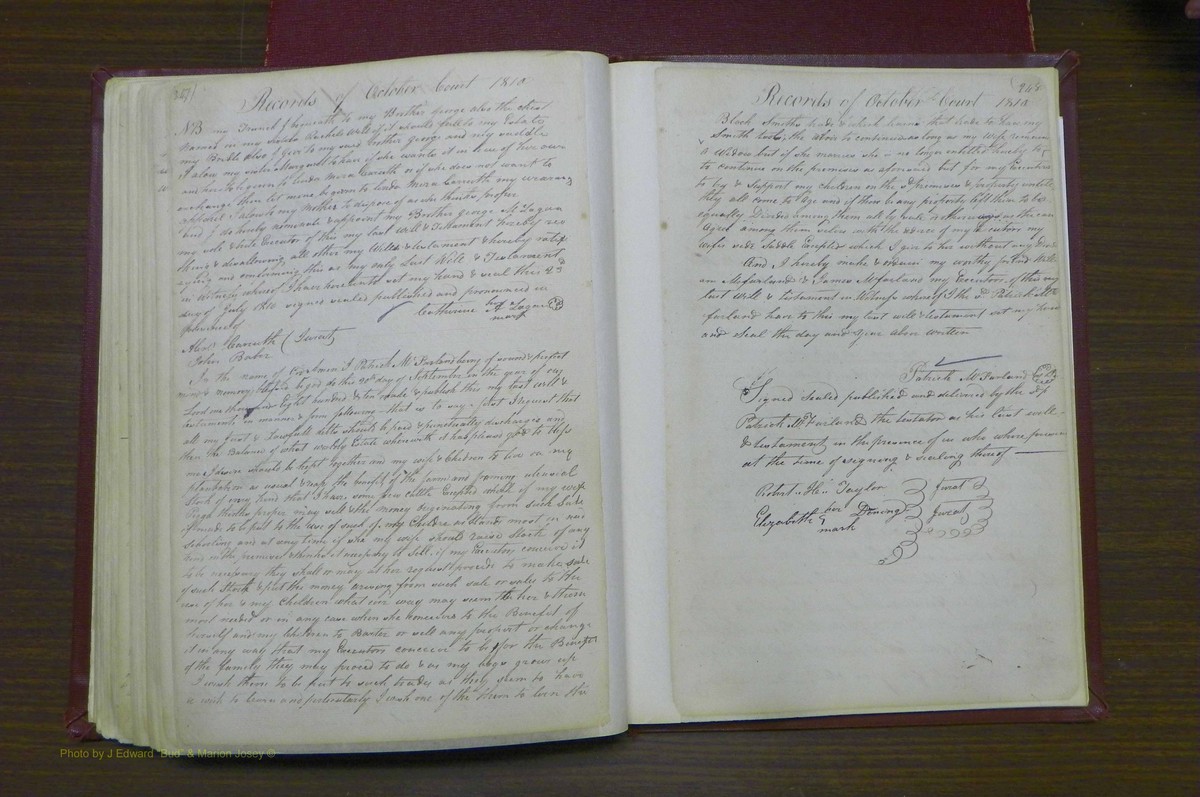 Records of October Court 1810
NB my Trunck I bequeath to my Brother George also the chest
named in my fathers will if it should fall to my Estate
my Bridle also I give to my said brother George and my saddle
I alow my sister Margaret to have if she wants it in lieu of her own
and hers to be given to Linda Mira Carruth or if she does not want to
exchange then let mine be given to Linda Mira Carruth my wearing
apparel I alow to my mother to dispose of as she thinks proper
And I do hereby nominate & appoint my Brother George McLagan
my sole Executor of this my last will & Testament hereby
& disallowing all other my Wills & testament & hereby ratifi
and confirming this as my only Last Will & Testament
in Witness whereof I have hereunto set my hand & seal this 23d
day of July 1810 signed sealed published and pronounced in
presence of
Catherine her A Lagan
mark
Alexr Carruth (Jurat)
John Barber
In the name of God Amen I Patrick McFarland being of sound & perfect
mind & memory blessed be god do this 20th day of September in the year of our
Lord one thousand Eight hundred & ten make & publish this my last will &
testament in manner & form following that is to say first I request that
all my just & Lawfull debts should be paid & punctually discharged and
then the Balance of what worldly Estate wherewith it has pleased god to bless
me I desire should be kept together and my wife & Children to live on my
plantation as usual & reap the benefit of the farm and farming utensial
Stock of every kind that I have, some few cattle Excepted which if my wife
thinks proper may sell & the money originating from such sale
to be put to the use of such of my Children as stands most in need
schooling and at any time if she my wife should raise stock of any
kind on the premises & thinks it necessary to sell if my Executors conceive it
to be necessary they shall or may at her request proceed to make sale
of such Stock & put the money arising from such sale or sales to the
use of her & my Children what ever way may seem to her & them
most needed or in any case when she conceives to the Benefit of
herself and my children to Barter or sell any property or change
it in any way that my Executors conceive to be for the Benefit
of the family they may proceed to do & as my boys grow up
I wish them to be put to such trades as they seem to have
a wish to learn and particularly I wish one of them to learn the
248
Records of October Court 1810
Black Smiths trade & which learns that trade to have my
Smith tools, the above to continue as long as my wife remains
a Widow but if she marries she is no longer entitled hereby to
to continue on the premises as aforesaid but for my Executors
to try & Support my children on the sd premises & property untill
they all come to age and if there be any property left then to be
equally Divided among them all
Aged among them selves with the advice of my Executors my
Wifes side Saddle Excepted which I give to her without any
And, I hereby make & ordain my worthy friend Will-
iam Mcfarland & James Mcfarland my Executors of this my
last Will & testament in Witness whereof I the sd Patrick Mc-
farland have to this my last will & testament set my hand
and Seal the day and year above written
Patrick McFarland
Signed Sealed published and delivered by the sd
Patrick McFarland the testator as his last will
& testament in the presence of us who where present
at the time of signing & sealing thereof
Robert H. Taylor Jurat
Elizabeth her Doning Jurat
mark
Photo by J Edward "Bud" & Marion Josey ©